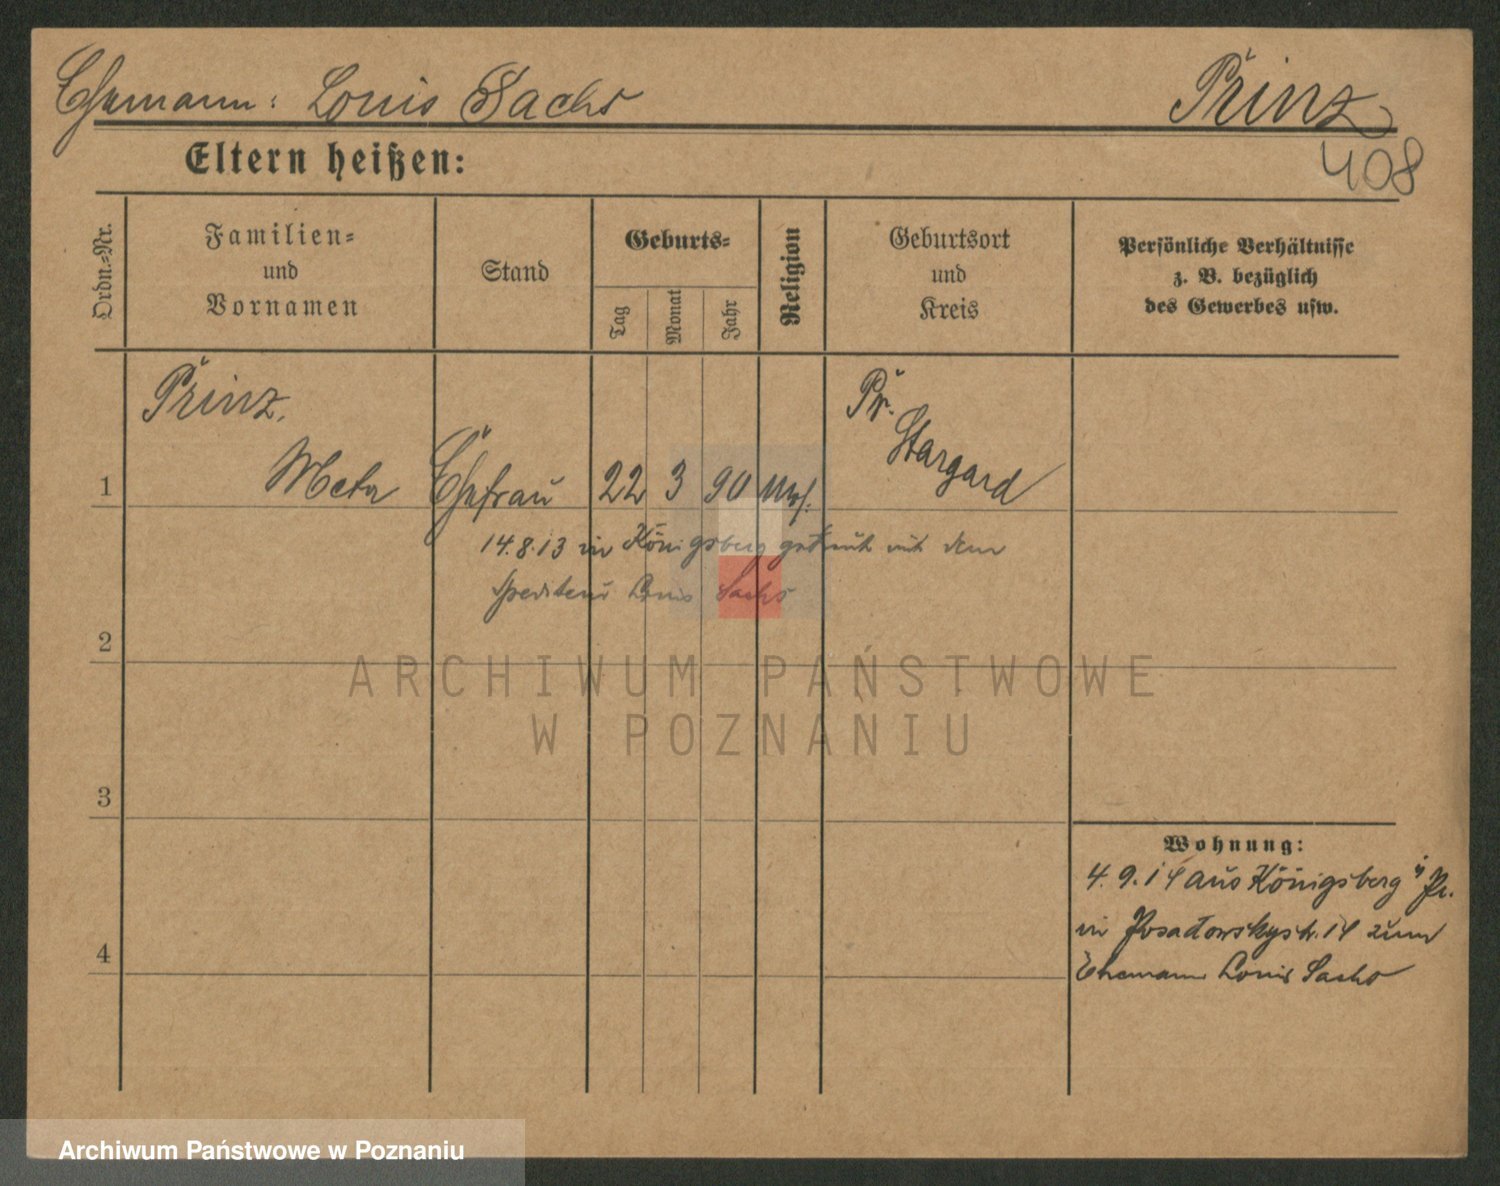 Ehemann: Louis Sachs
Prinz
408
Eltern heißen:
Ordn.-Nr.
Familien-
und
Vornamen
Stand
Geburts-
Tag
Monat
Jahr
Religion
Geburtsort
und
Kreis
Persönliche Verhältnisse
z. B. bezüglich
des Gewerbes usw.
Prinz.
Pr.
Stargard
1
Meta
Ehefrau
22
3
90
mos.
14.8.13 in Königsberg getraut mit dem
Spediteur Louis Sachs
2
ARCHIWUM PAŃSTWOWE
W POZNANIU
3
Wohnung:
4.9.14 aus Königsberg Pr.
in Posadowskystr. 14 zum
Ehemann Louis Sachs
4
Archiwum Państwowe w Poznaniu